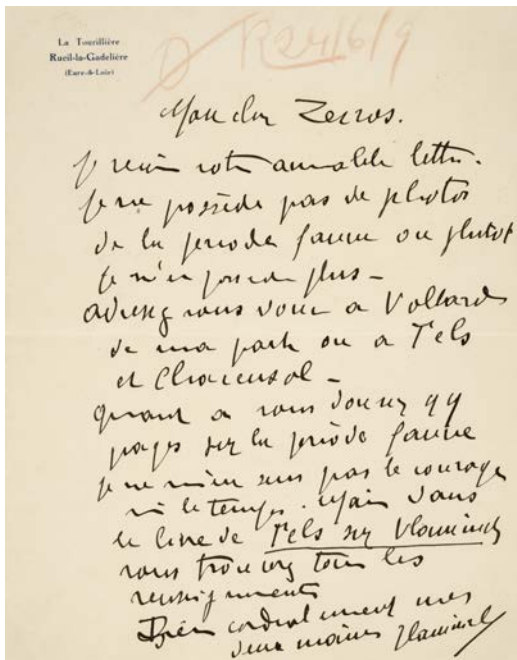 La Tourillière
Rueil-la-Gadelière
(Eure-&-Loir)
R 24/6/9
Mon cher Zervos.
je reçois votre aimable lettre.
je ne possède pas de photos
de la periode fauve ou plutot
je n'en possede plus –
adressez vous donc a Vollard
de ma part ou a Tels
et Charensol –
quant a vous donner qq
pages sur la période fauve
je ne m'en sens pas le courage
ni le temps. Mais dans
le livre de Tels sur Vlaminck
vous trouverez tous les
renseignements
Bien cordialement mes
deux mains Vlaminck